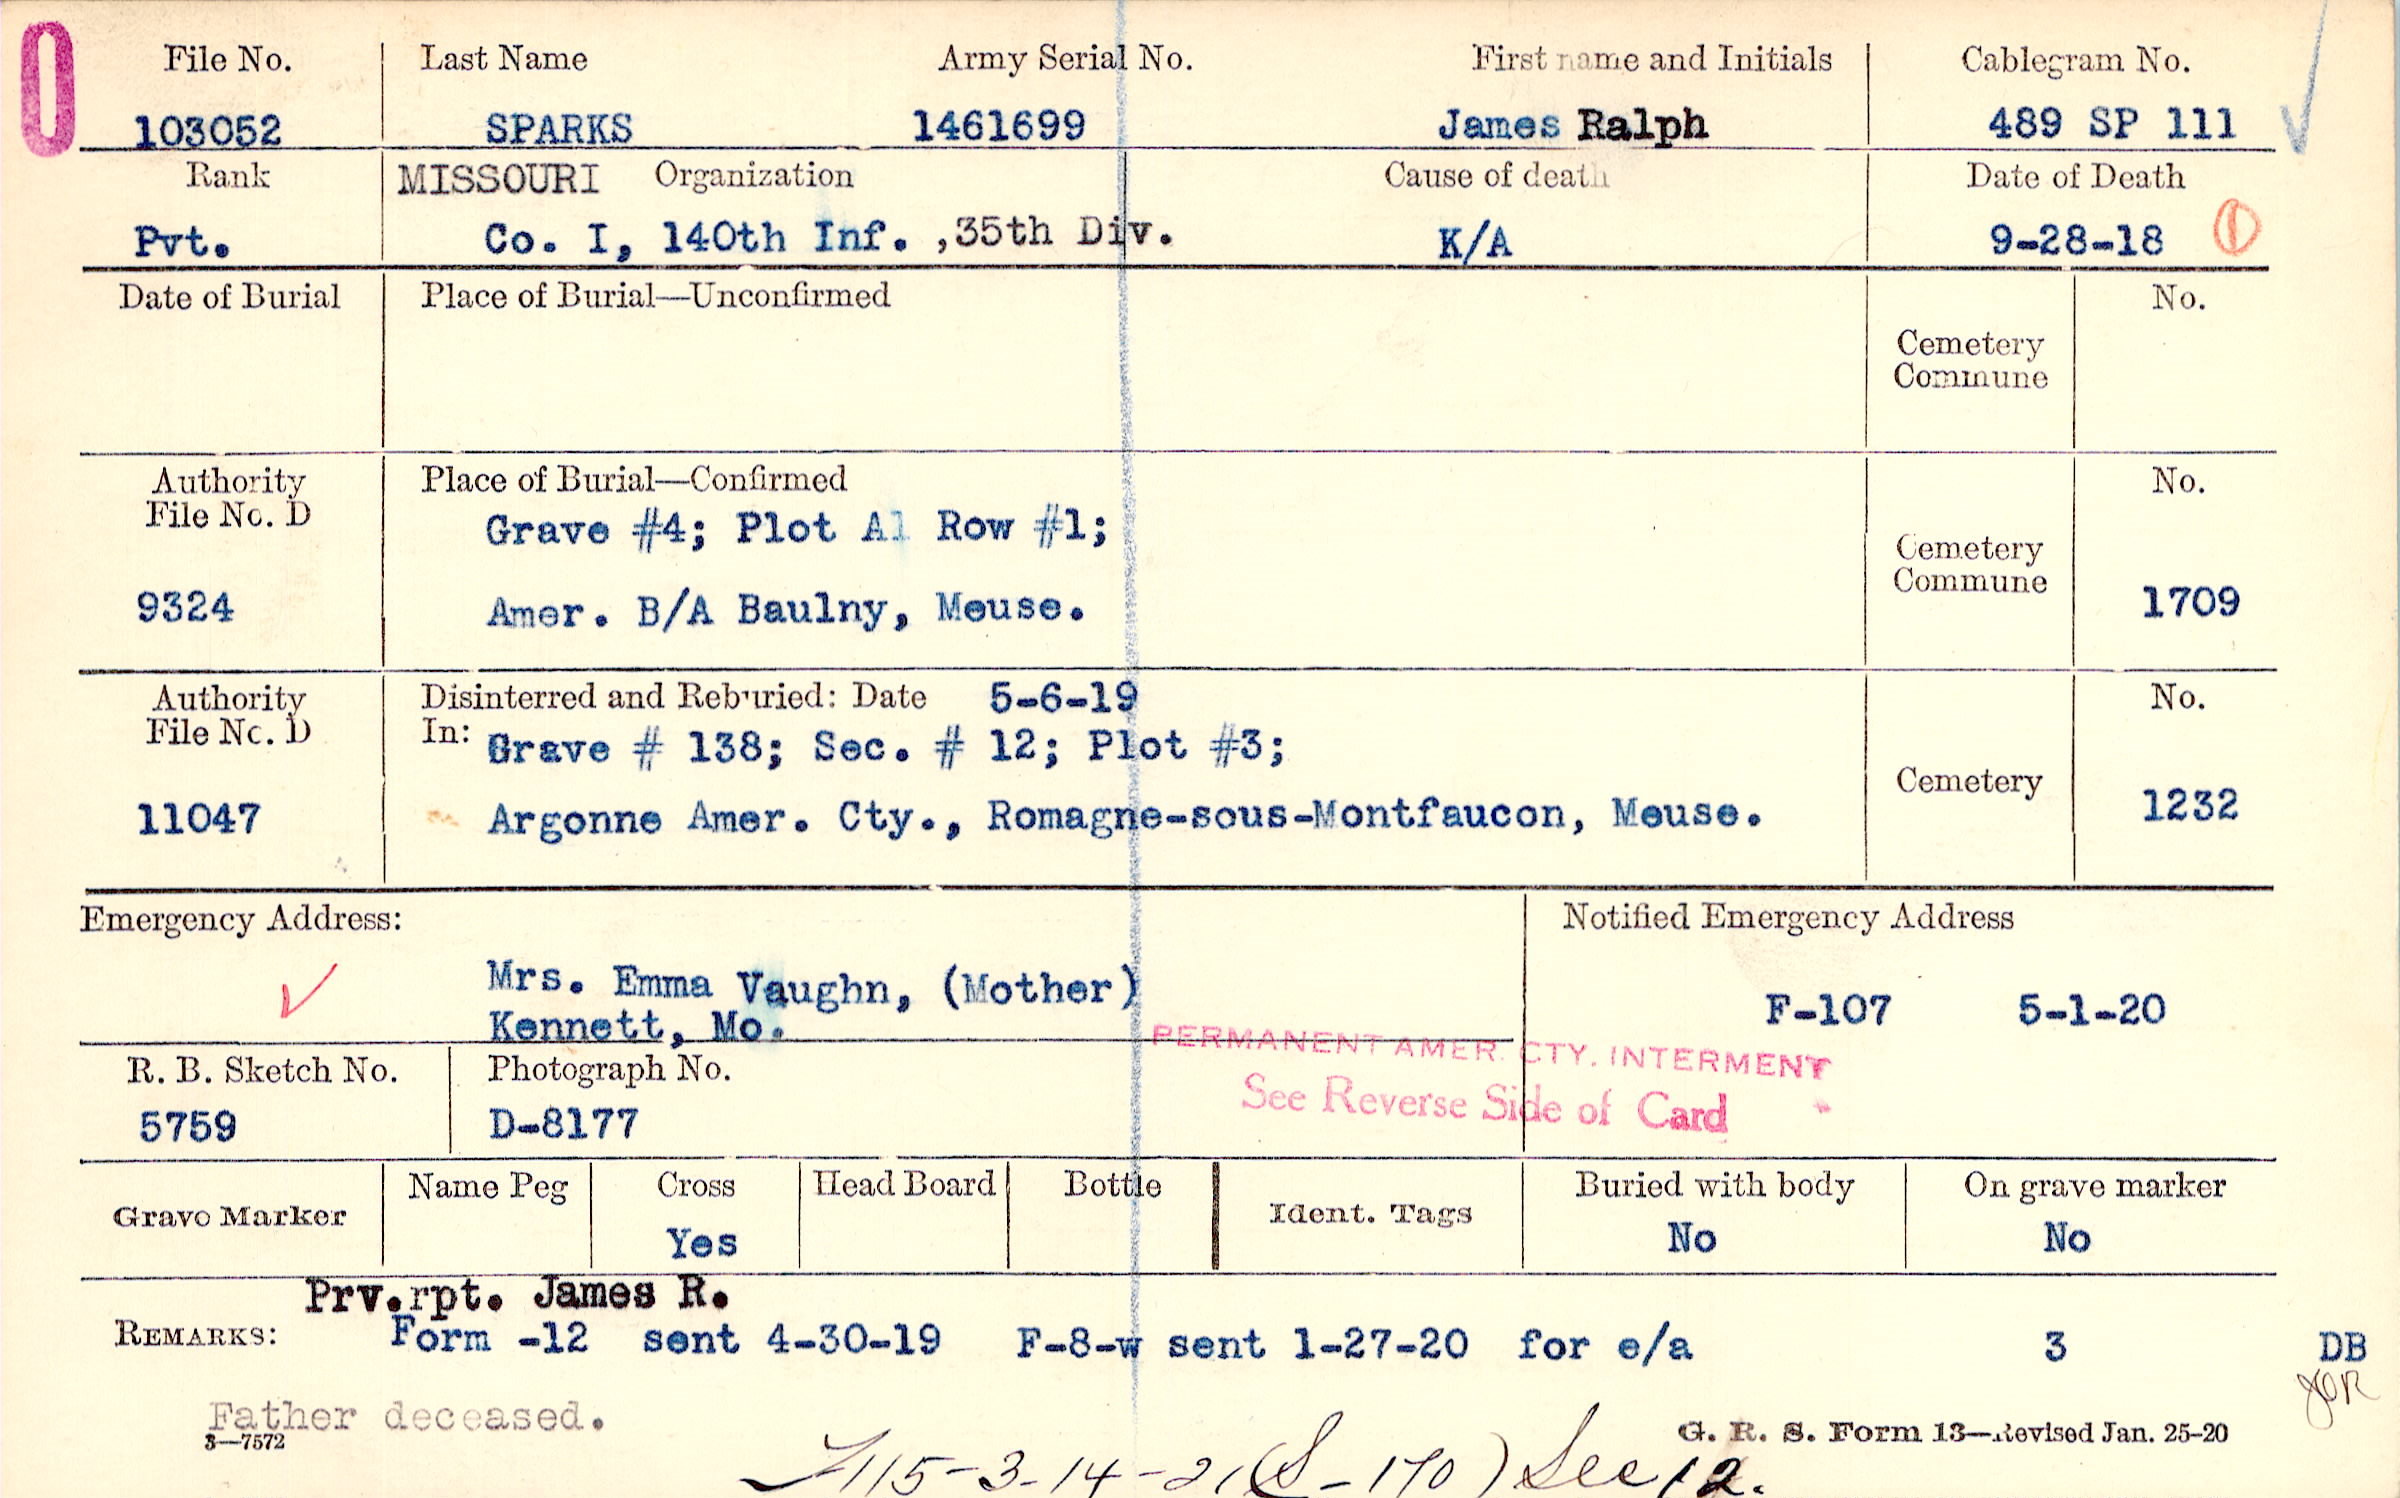 File No. Last Name Army Serial No. First name and Initials Cablegram No.
103052 SPARKS 1461699 James Ralph 489 SP 111
Rank MISSOURI Organization Cause of death Date of Death
Pvt. Co. I, 140th Inf. ,35th Div. K/A 9-28-18 1
Date of Burial Place of Burial—Unconfirmed No.
Cemetery
Commune
Authority Place of Burial—Confirmed No.
File No. D
Grave #4; Plot A1 Row #1;
Cemetery
Commune
9324 Amer. B/A Baulny, Meuse. 1709
Authority Disinterred and Reburied: Date 5-6-19 No.
File No. D In: Grave # 138; Sec. # 12; Plot #3;
Cemetery
11047 Argonne Amer. Cty., Romagne-sous-Montfaucon, Meuse. 1232
Emergency Address: Notified Emergency Address
Mrs. Emma Vaughn, (Mother) F-107 5-1-20
Kennett, Mo.
PERMANENT AMER. CTY. INTERMENT
R. B. Sketch No. Photograph No.
See Reverse Side of Card
5759 D-8177
Name Peg Cross Head Board Bottle Buried with body On grave marker
Grave Marker Ident. Tags
Yes No No
Prv.rpt. James R.
REMARKS: Form -12 sent 4-30-19 F-8-w sent 1-27-20 for e/a 3 DB
Father deceased.
3—7572 G. R. S. Form 13—Revised Jan. 25-20
115-3-14-21 (S-170) Sec 12.